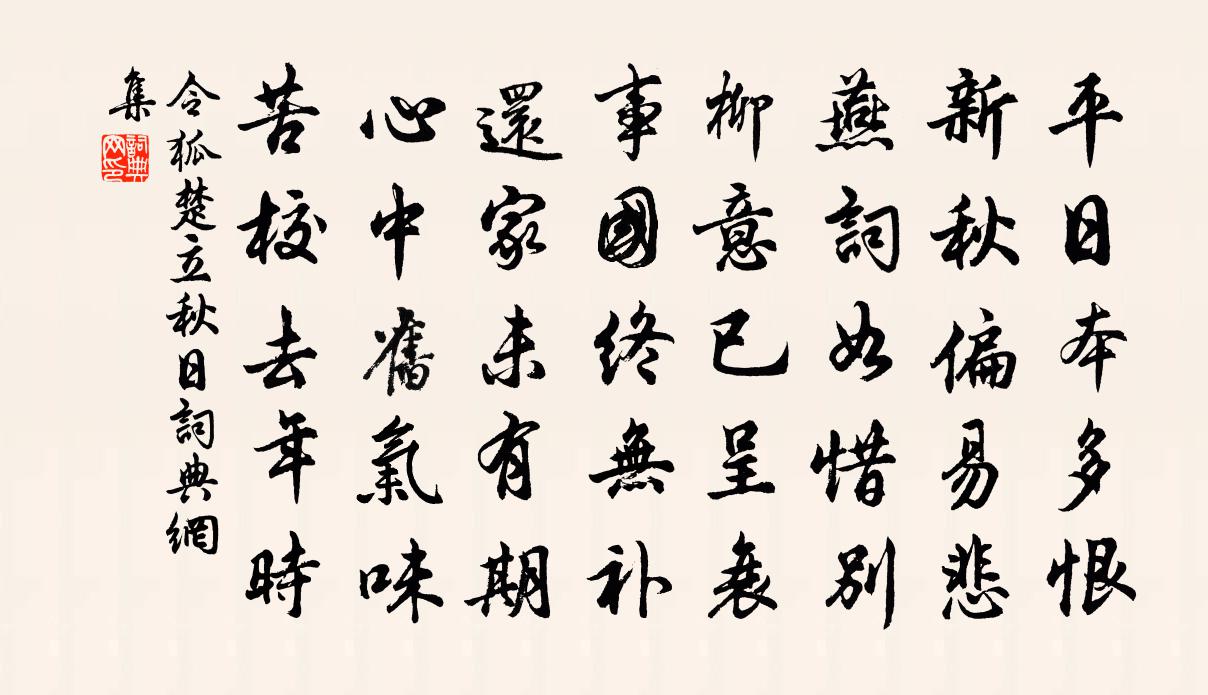 平日本多恨
新秋偏易悲
燕詞如惜別
柳意已呈衰
事國終無补
還家未有期
心中舊氣味
苦校去年時
令狐楚立秋日詞典網
集
詞典
网印